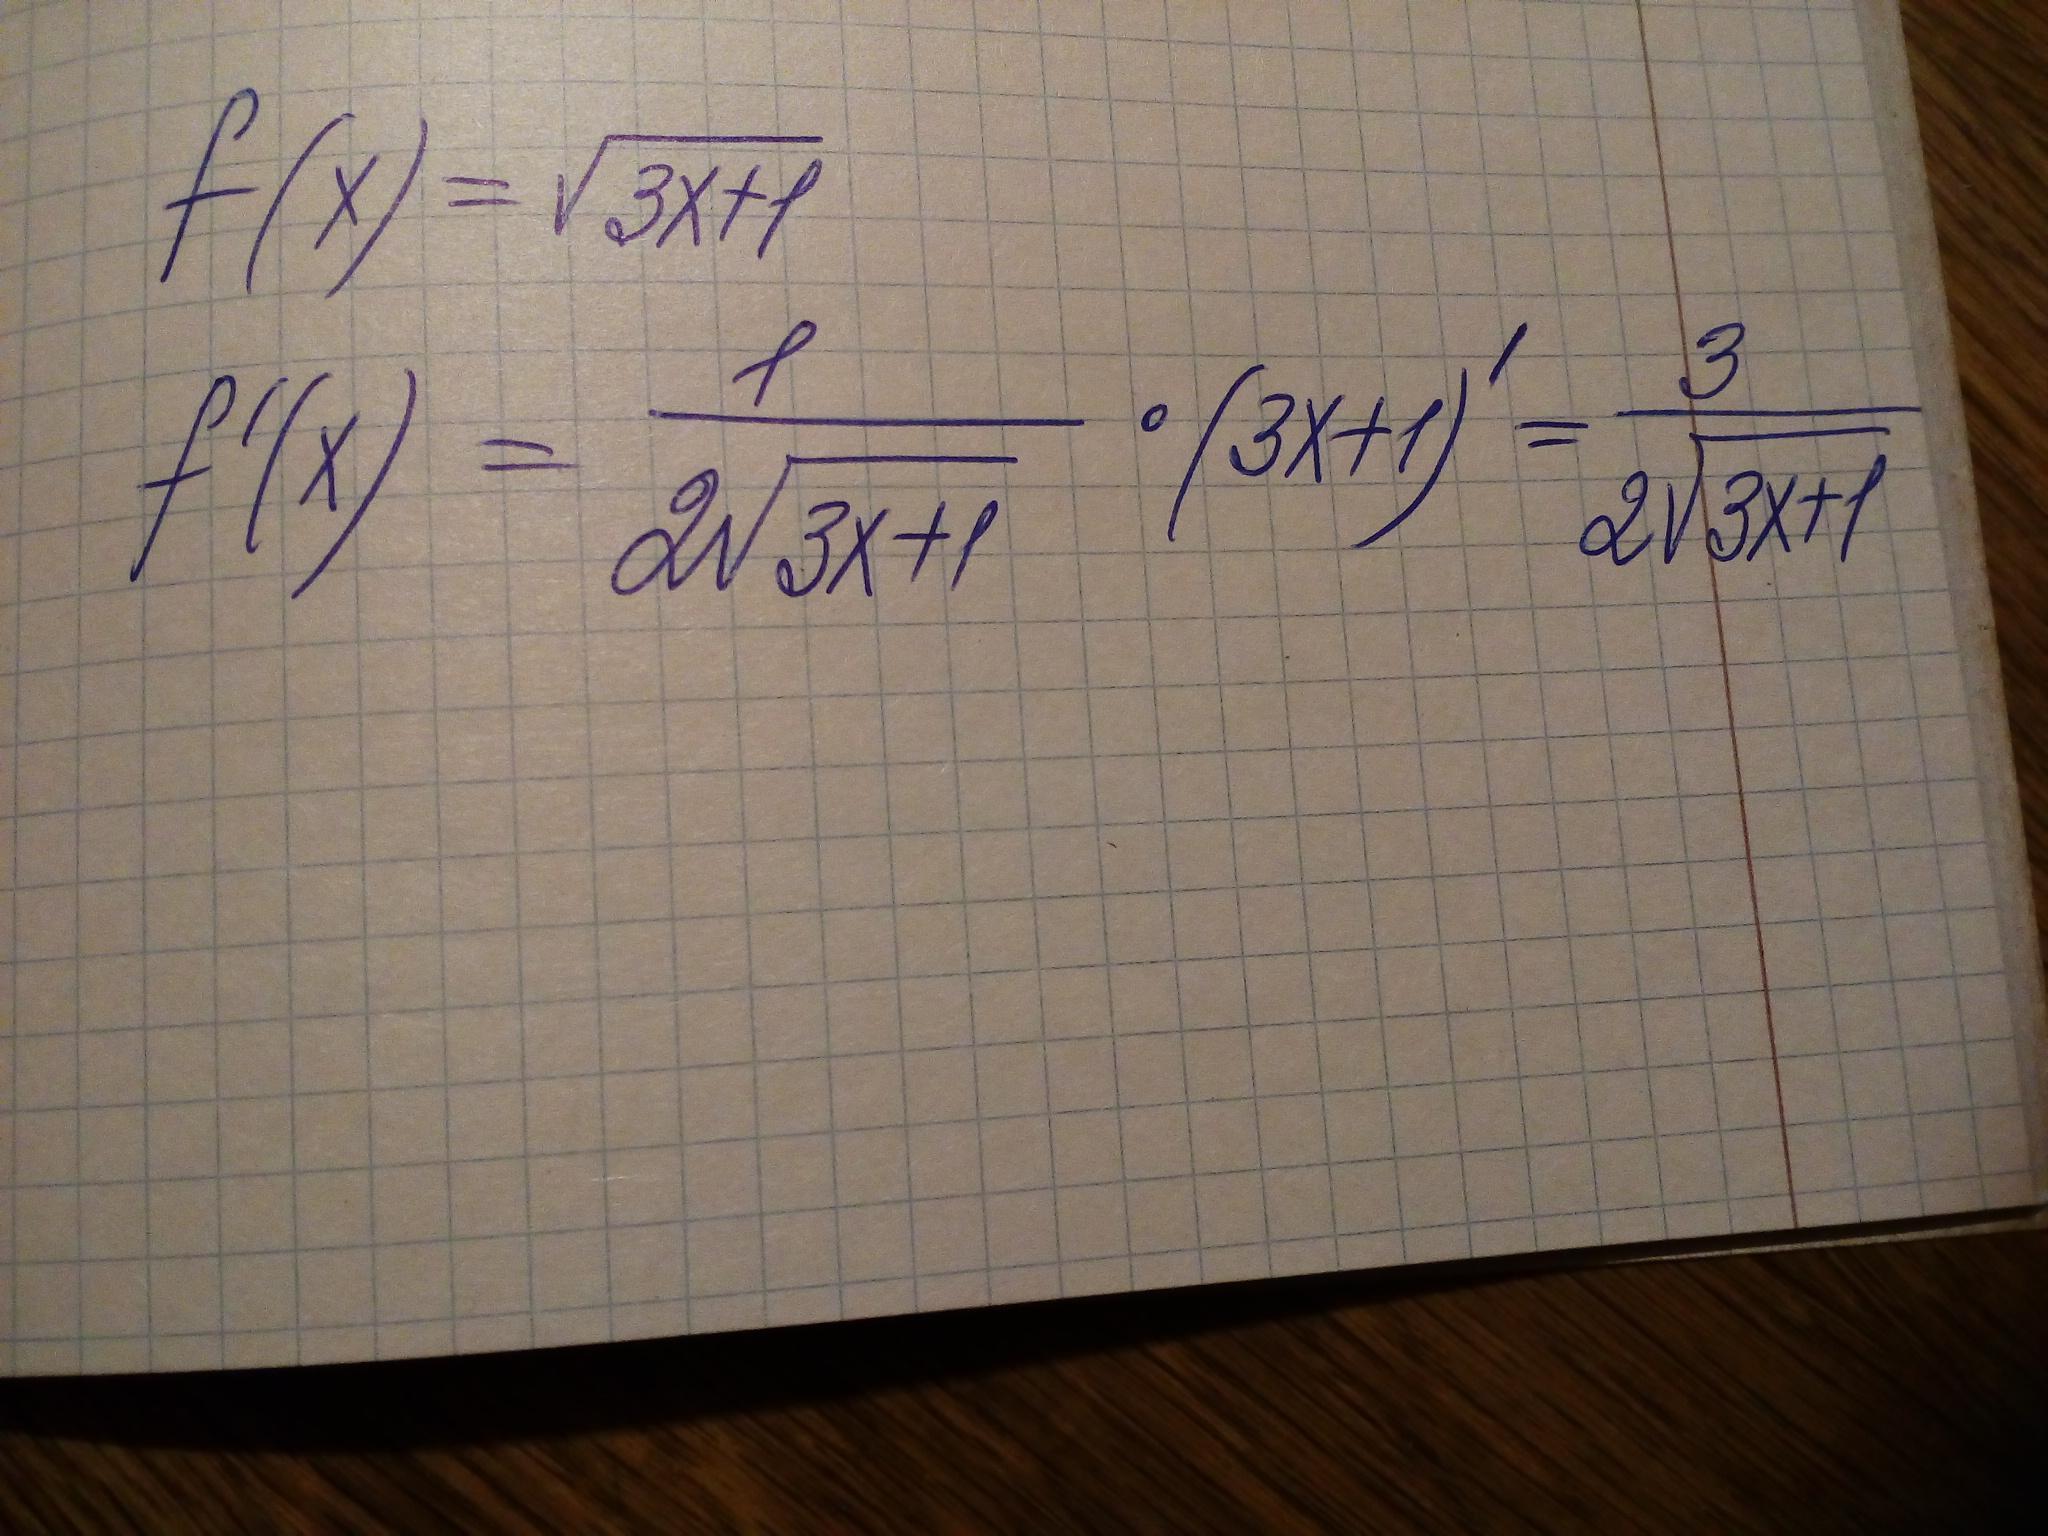 f(x) = √(3x+1)
f'(x) = 1/(2√(3x+1)) · (3x+1)' = 3/(2√(3x+1))